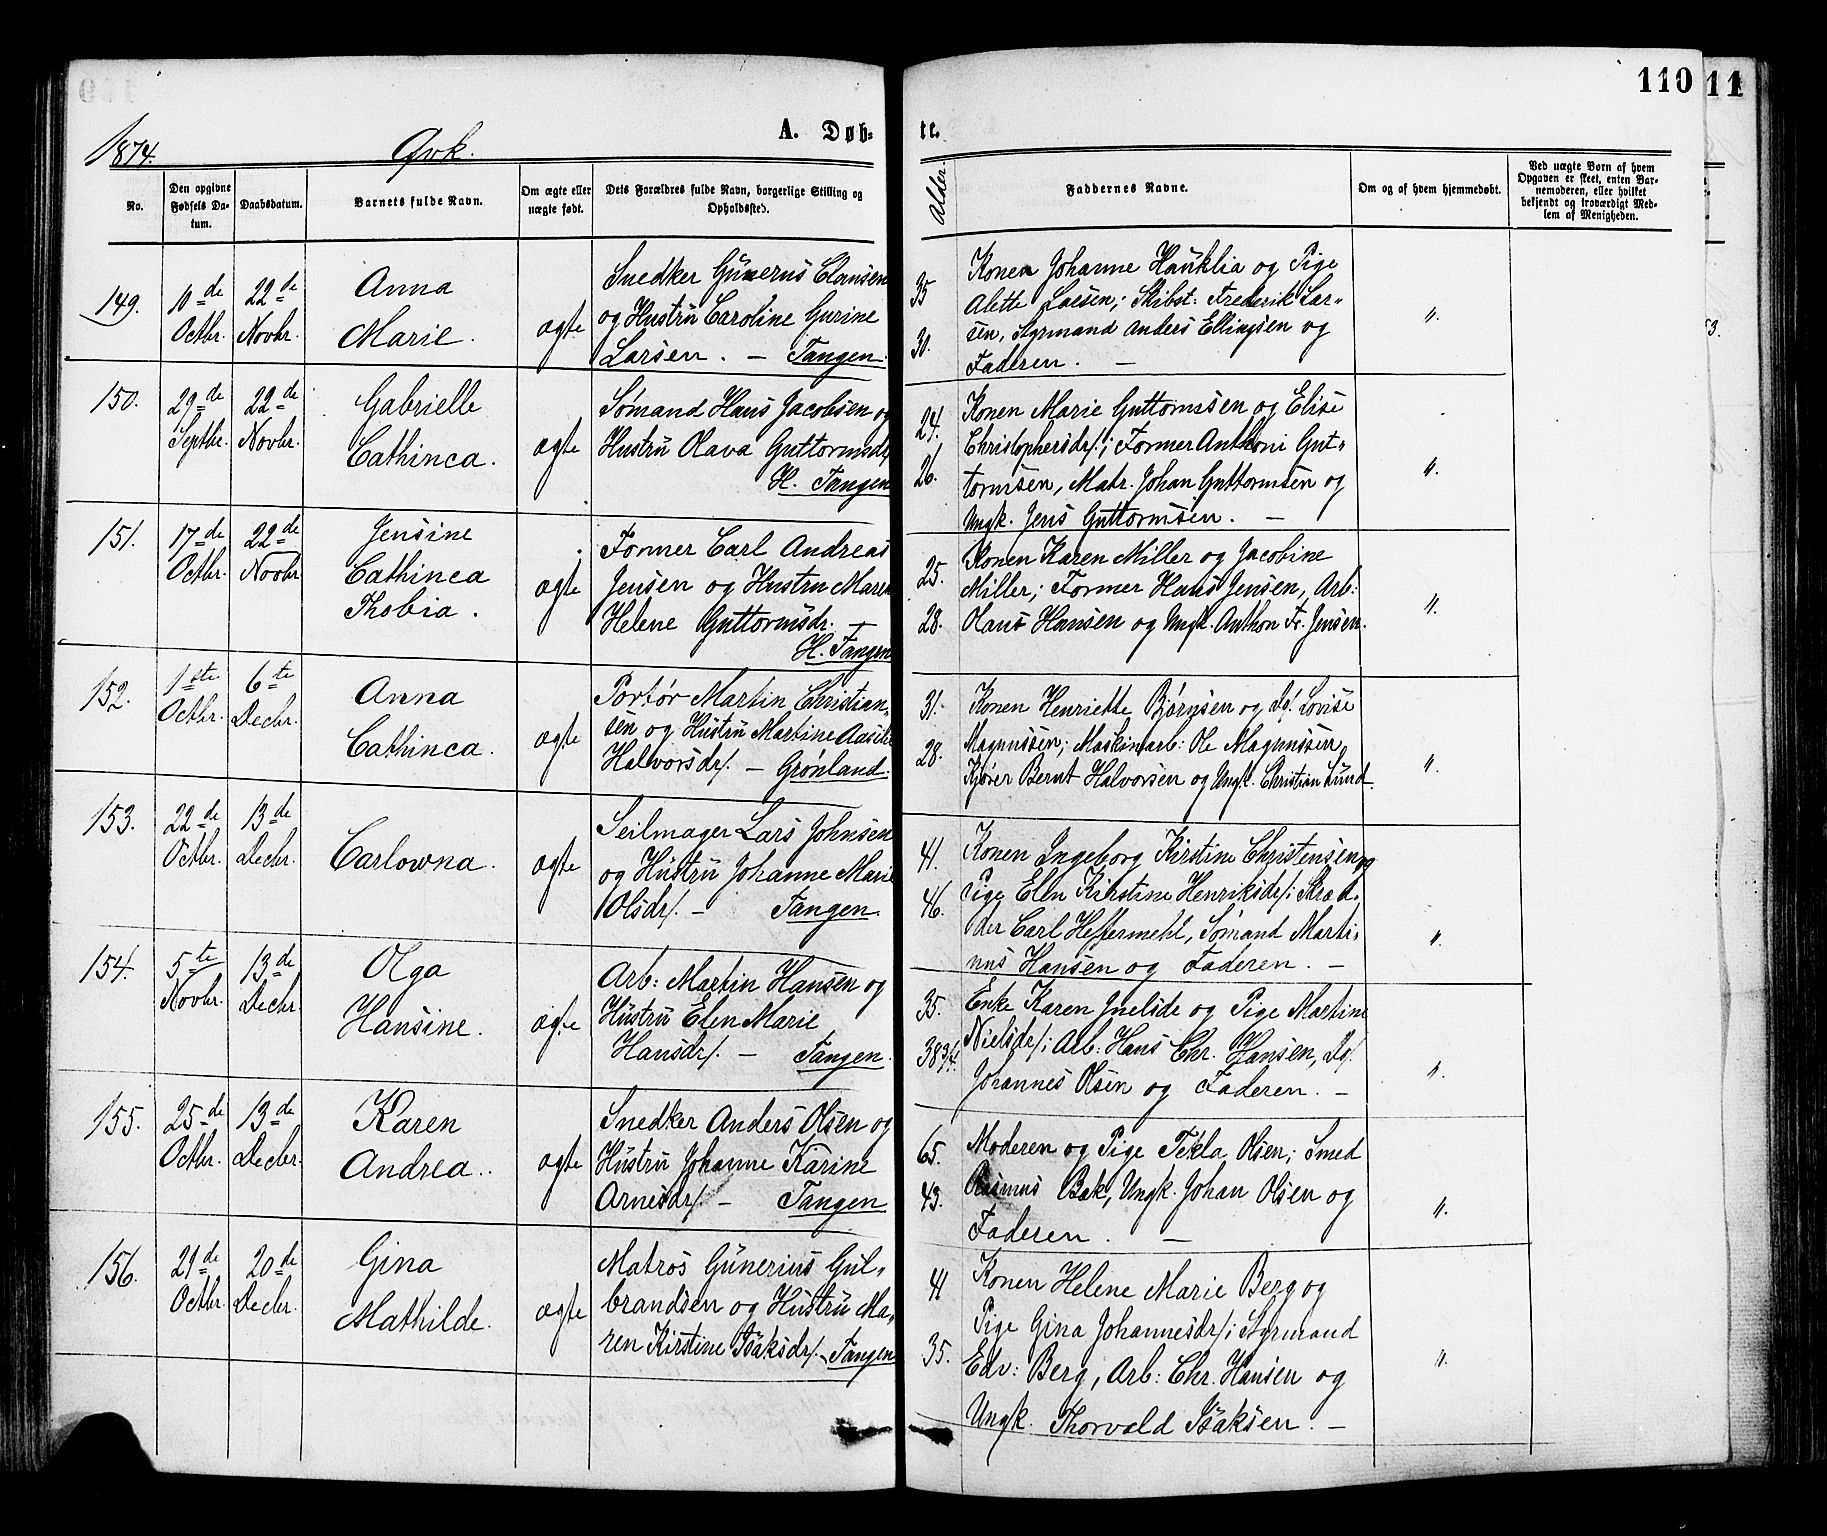 110
11
1874.
Qvk.
A. Døb-
te.
No.
Den opgivne
Fødsels Da-
tum.
Daabsdatum.
Barnets fulde Navn.
Om ægte eller
uægte født.
Dets Forældres fulde Navn, borgerlige Stilling og
Opholdssted.
Alder.
Faddernes Navne.
Om og af hvem hjemmedøbt.
Ved uægte Børn af hvem
Opgaven er skeet, enten Bar-
nemoderen, eller hvilket
bekjendt og troværdigt Med-
lem af Menigheden.
149.
10de
Octbr.
22de
Novbr.
Anna
Marie.
ægte
Snedker Gunerus Clausen
og Hustru Caroline Gurine
Larsen. – Tangen.
35
30.
Konen Johanne Hauklia og Pige
Alette Larsen; Skibst: Frederik Lar-
sen, Styrmand Anders Ellingsen og
Faderen. –
".
150.
29de
Septbr.
22de
Novbr.
Gabrielle
Cathinca.
ægte
Sømand Hans Jacobsen og
Hustru Olava Guttormsdr.
H. Tangen
24.
26.
Konen Marie Guttormsen og Elise
Christophersdr.; Former Anthoni Gut-
tormsen, Matr. Johan Guttormsen og
Ungk. Jens Guttormsen. –
".
151.
17de
Octbr.
22de
Novbr
Jensine
Cathinca
Thobia.
ægte
Former Carl Andreas
Jensen og Hustru Maren
Helene Guttormsdr. –
H. Tangen
25.
28.
Konen Karen Miller og Jacobine
Miller; Former Hans Jensen, Arb:
Hans Hansen og Ungk. Anthon Fr. Jensen.
".
152.
1ste
Octbr.
6te
Decbr.
Anna
Cathinca.
ægte
Portør Martin Christian-
sen og Hustru Martine
Halvorsdr. – Grønland.
31.
28.
Konen Henriette Bjørnsen og Do. Lovise
Magnussen; Maskinarb: Ole Magnussen
Kjører Bernt Halvorsen og Ungk. Christian Lund.
".
153.
22de
Octbr.
13de
Decbr.
Carlowna.
ægte
Seilmager Lars Johnsen
og Hustru Johanne Marie
Olsdr. – Tangen.
41.
46.
Konen Ingeborg Kirstine Christensen og
Pige Elen Kirstine Henriksdr.; Skræd-
der Carl Heffermehl, Sømand Marti-
nus Hansen og Faderen. –
".
154.
5te
Novbr.
13de
Decbr.
Olga
Hansine.
ægte
Arb: Martin Hansen og
Hustru Elen Marie
Hansdr. – Tangen.
35.
38 3/4.
Enke Karen og Pige Martine
Nielsdr.; Arb: Hans Chr. Hansen, Do.
Johannes Olsen og Faderen. –
".
155.
25de
Octbr.
13de
Decbr.
Karen
Andrea.
ægte
Snedker Anders Olsen og
Hustru Johanne Karine
Arnesdr. – Tangen
65.
43.
Moderen og Pige Tekla Olsen; Smed
Rasmus Bak, Ungk. Johan Olsen og
Faderen. –
".
156.
29de
Octbr.
20de
Decbr.
Gina
Mathilde.
ægte
Matros Gunerius Gul-
brandsen og Hustru Ma-
ren Kirstine Isaksdr. – Tangen
41
35.
Konen Helene Marie Berg og
Pige Gina Johannesdr.; Styrmand
Edv: Berg, Arb: Chr. Hansen og
Ungk. Thorvald Isaksen. –
".